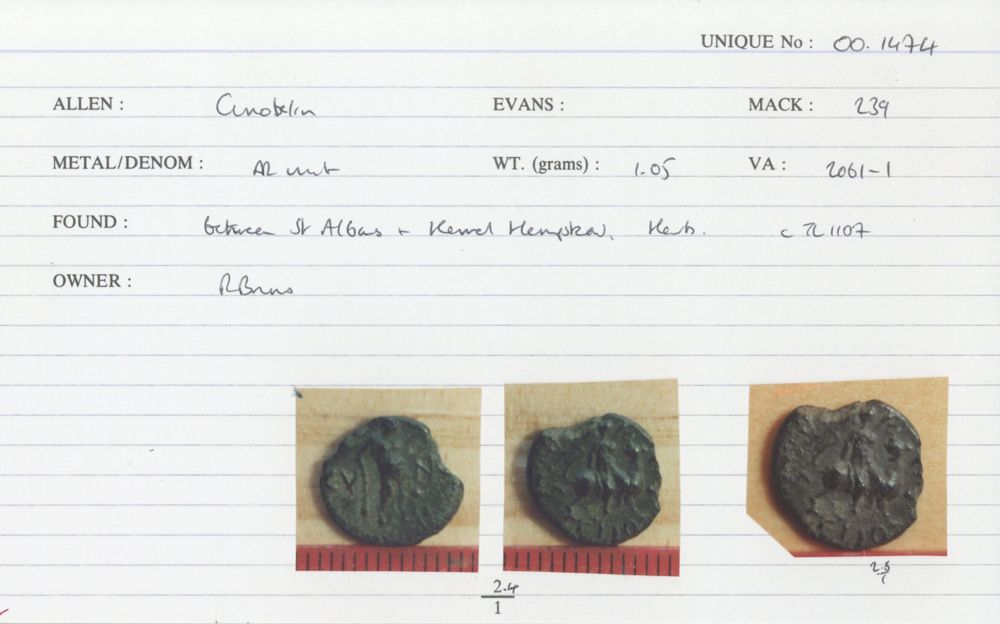 UNIQUE No : 00.1474
ALLEN : Cunobelin EVANS : MACK : 239
METAL/DENOM : AR unit WT. (grams) : 1.05 VA : 2061-1
FOUND : between St Albans + Hemel Hempstead, Herts. c TL 1107
OWNER : R
2.4
1